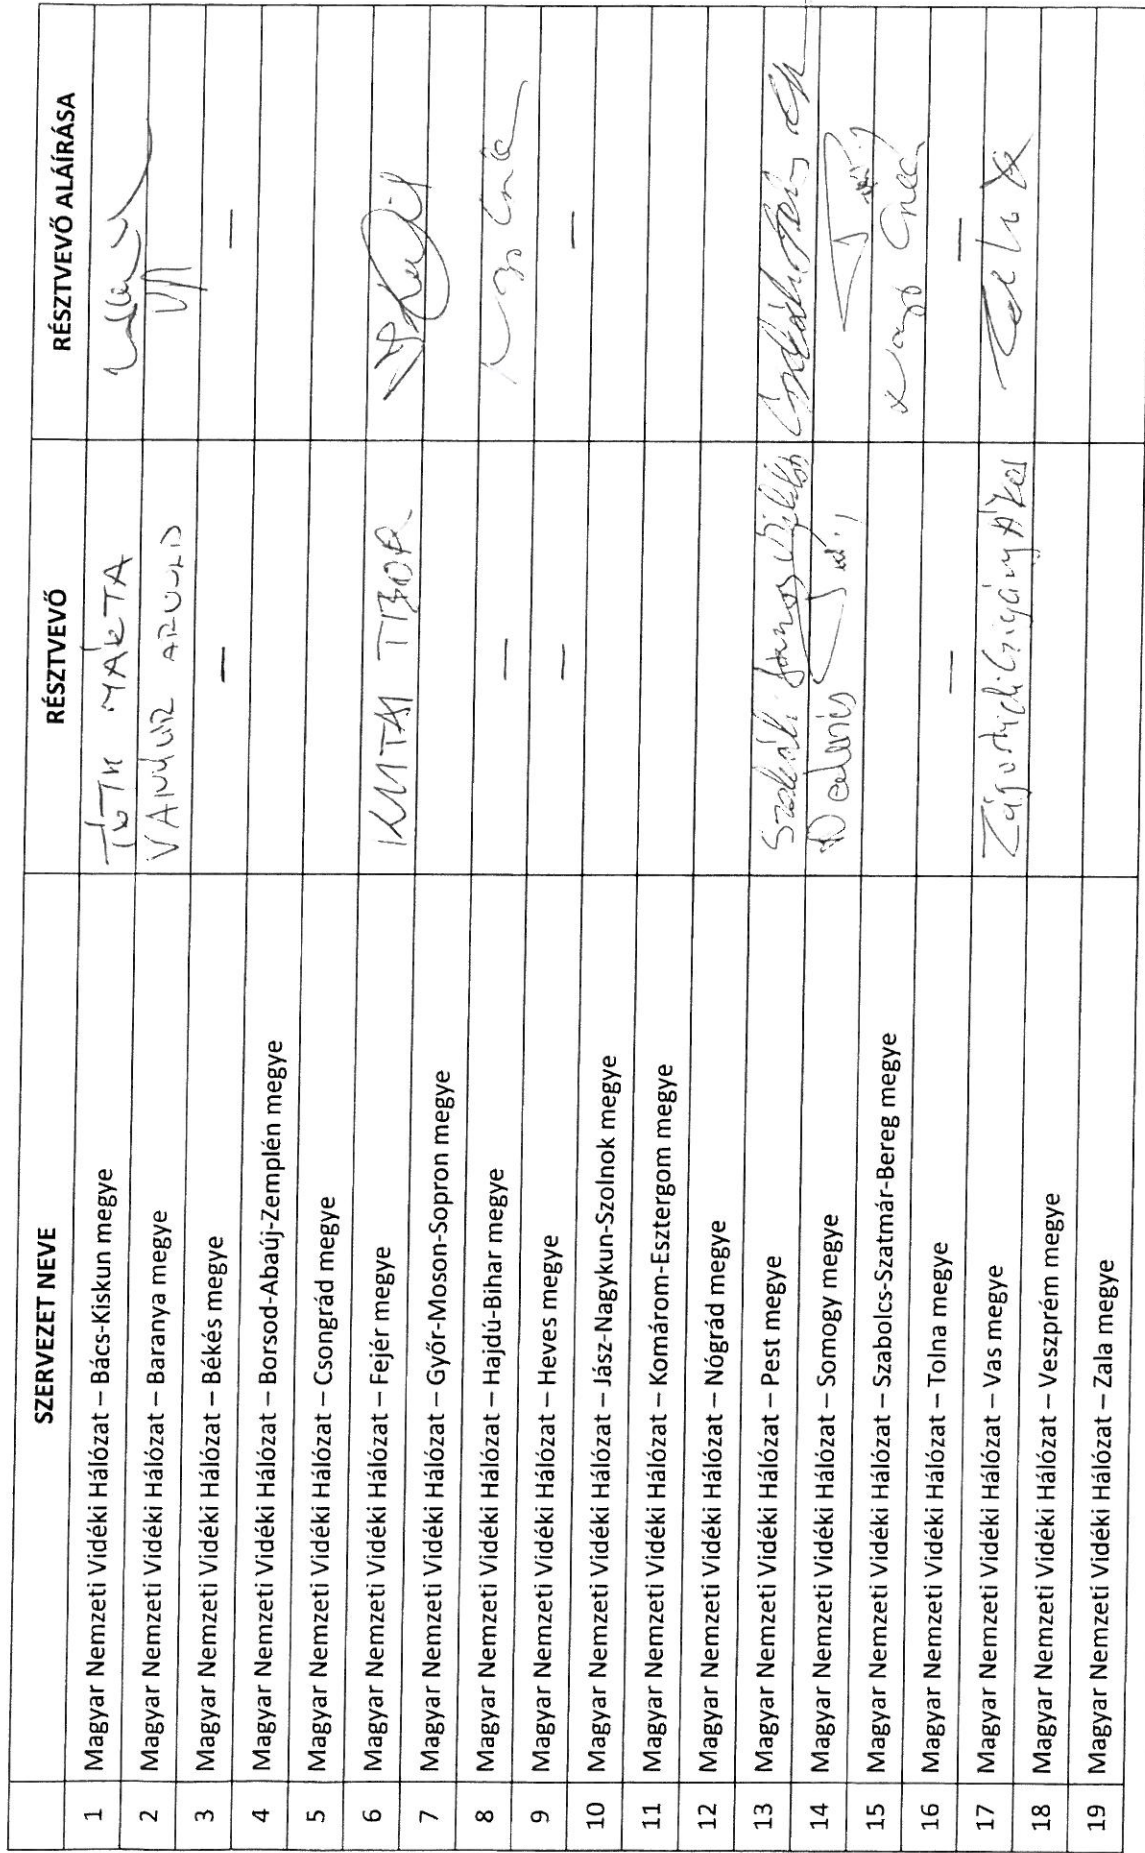 SZERVEZET NEVE RÉSZTVEVŐ RÉSZTVEVŐ ALÁÍRÁSA
1 Magyar Nemzeti Vidéki Hálózat – Bács-Kiskun megye TÓTH MÁRTA
2 Magyar Nemzeti Vidéki Hálózat – Baranya megye
3 Magyar Nemzeti Vidéki Hálózat – Békés megye — —
4 Magyar Nemzeti Vidéki Hálózat – Borsod-Abaúj-Zemplén megye
5 Magyar Nemzeti Vidéki Hálózat – Csongrád megye
6 Magyar Nemzeti Vidéki Hálózat – Fejér megye TIBOR
7 Magyar Nemzeti Vidéki Hálózat – Győr-Moson-Sopron megye
8 Magyar Nemzeti Vidéki Hálózat – Hajdú-Bihar megye —
9 Magyar Nemzeti Vidéki Hálózat – Heves megye — —
10 Magyar Nemzeti Vidéki Hálózat – Jász-Nagykun-Szolnok megye
11 Magyar Nemzeti Vidéki Hálózat – Komárom-Esztergom megye
12 Magyar Nemzeti Vidéki Hálózat – Nógrád megye
13 Magyar Nemzeti Vidéki Hálózat – Pest megye
14 Magyar Nemzeti Vidéki Hálózat – Somogy megye
15 Magyar Nemzeti Vidéki Hálózat – Szabolcs-Szatmár-Bereg megye
16 Magyar Nemzeti Vidéki Hálózat – Tolna megye — —
17 Magyar Nemzeti Vidéki Hálózat – Vas megye Ákos
18 Magyar Nemzeti Vidéki Hálózat – Veszprém megye
19 Magyar Nemzeti Vidéki Hálózat – Zala megye